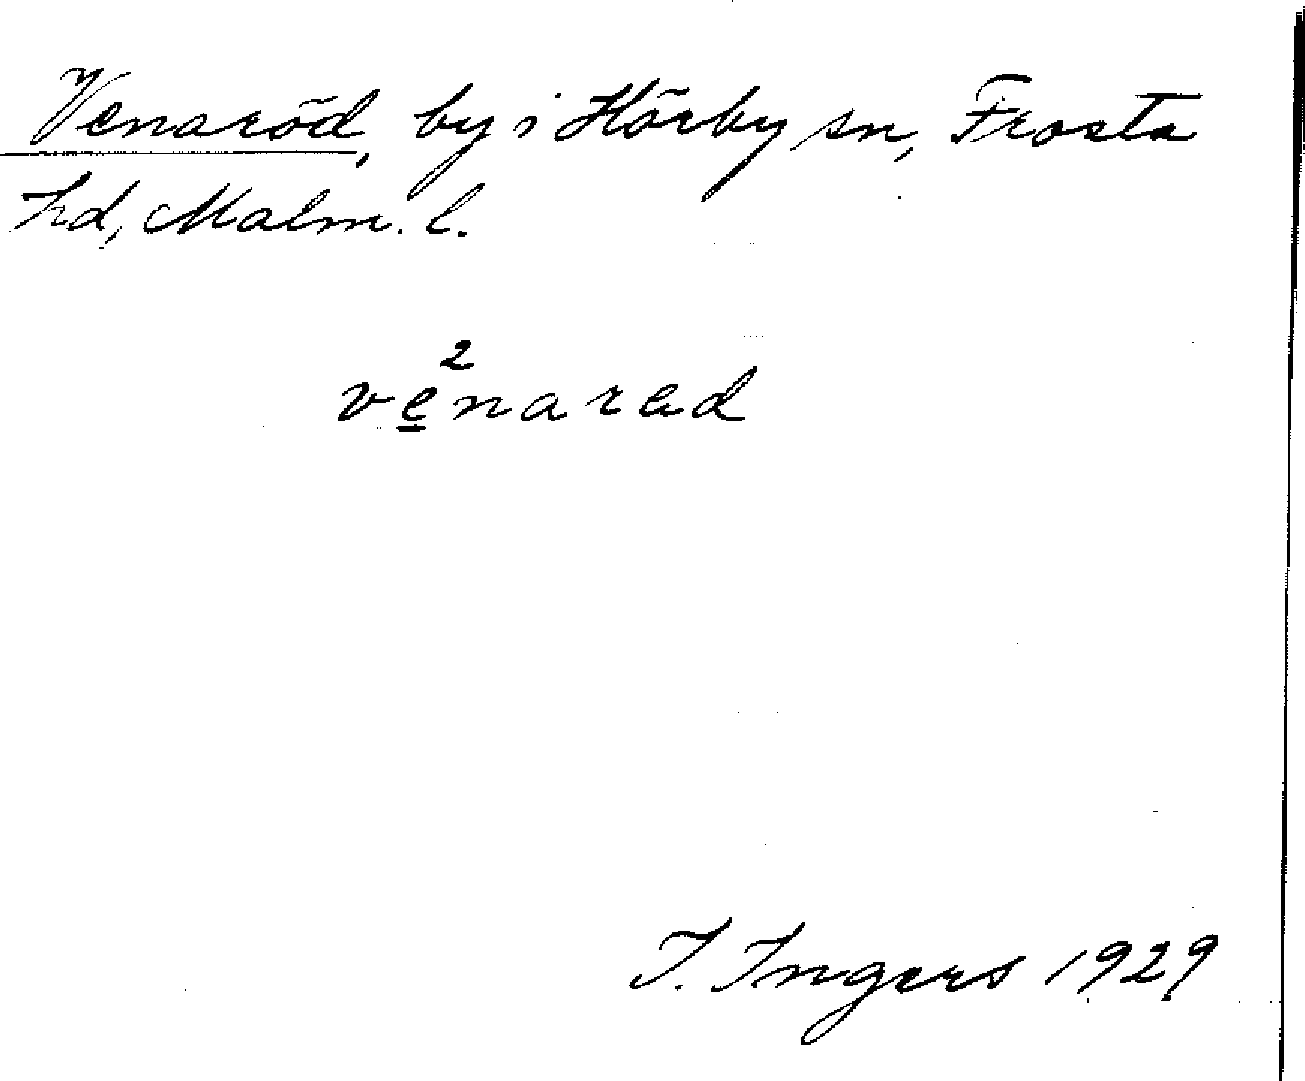 Venaröd, by i Hörby sn, Frosta
hd, Malm. l.
ve̱²narad
I. Ingers 1929